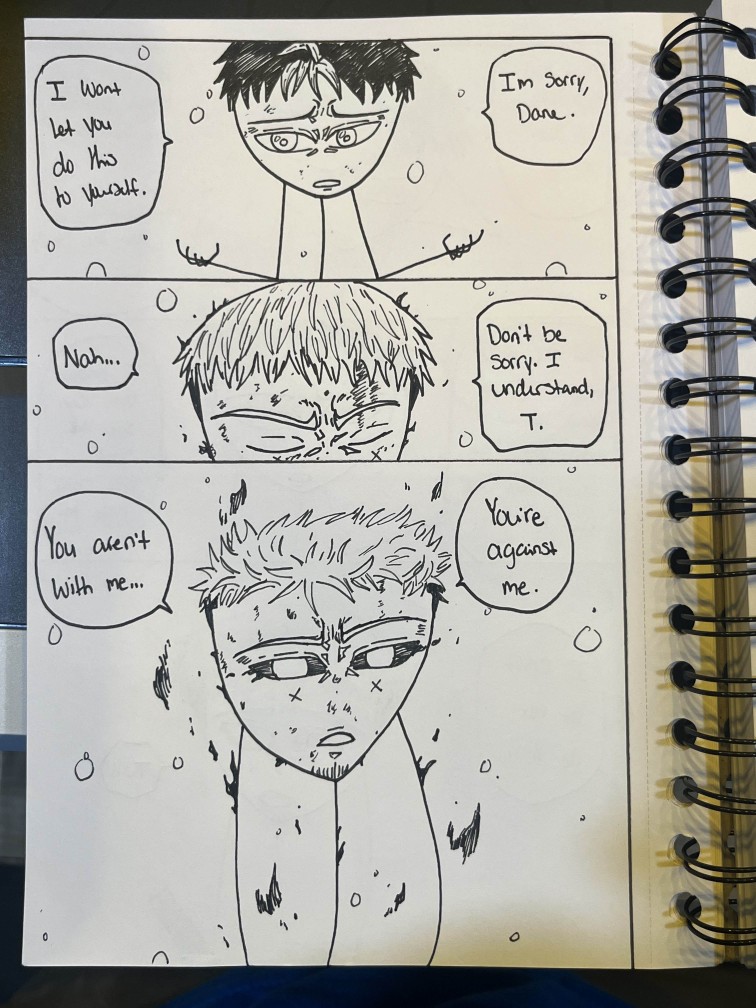 I Wont
let you
do this
to yourself.
I'm Sorry,
Dane.
Nah...
Don't be
sorry. I
understand,
T.
You aren't
with me...
You're
against
me.